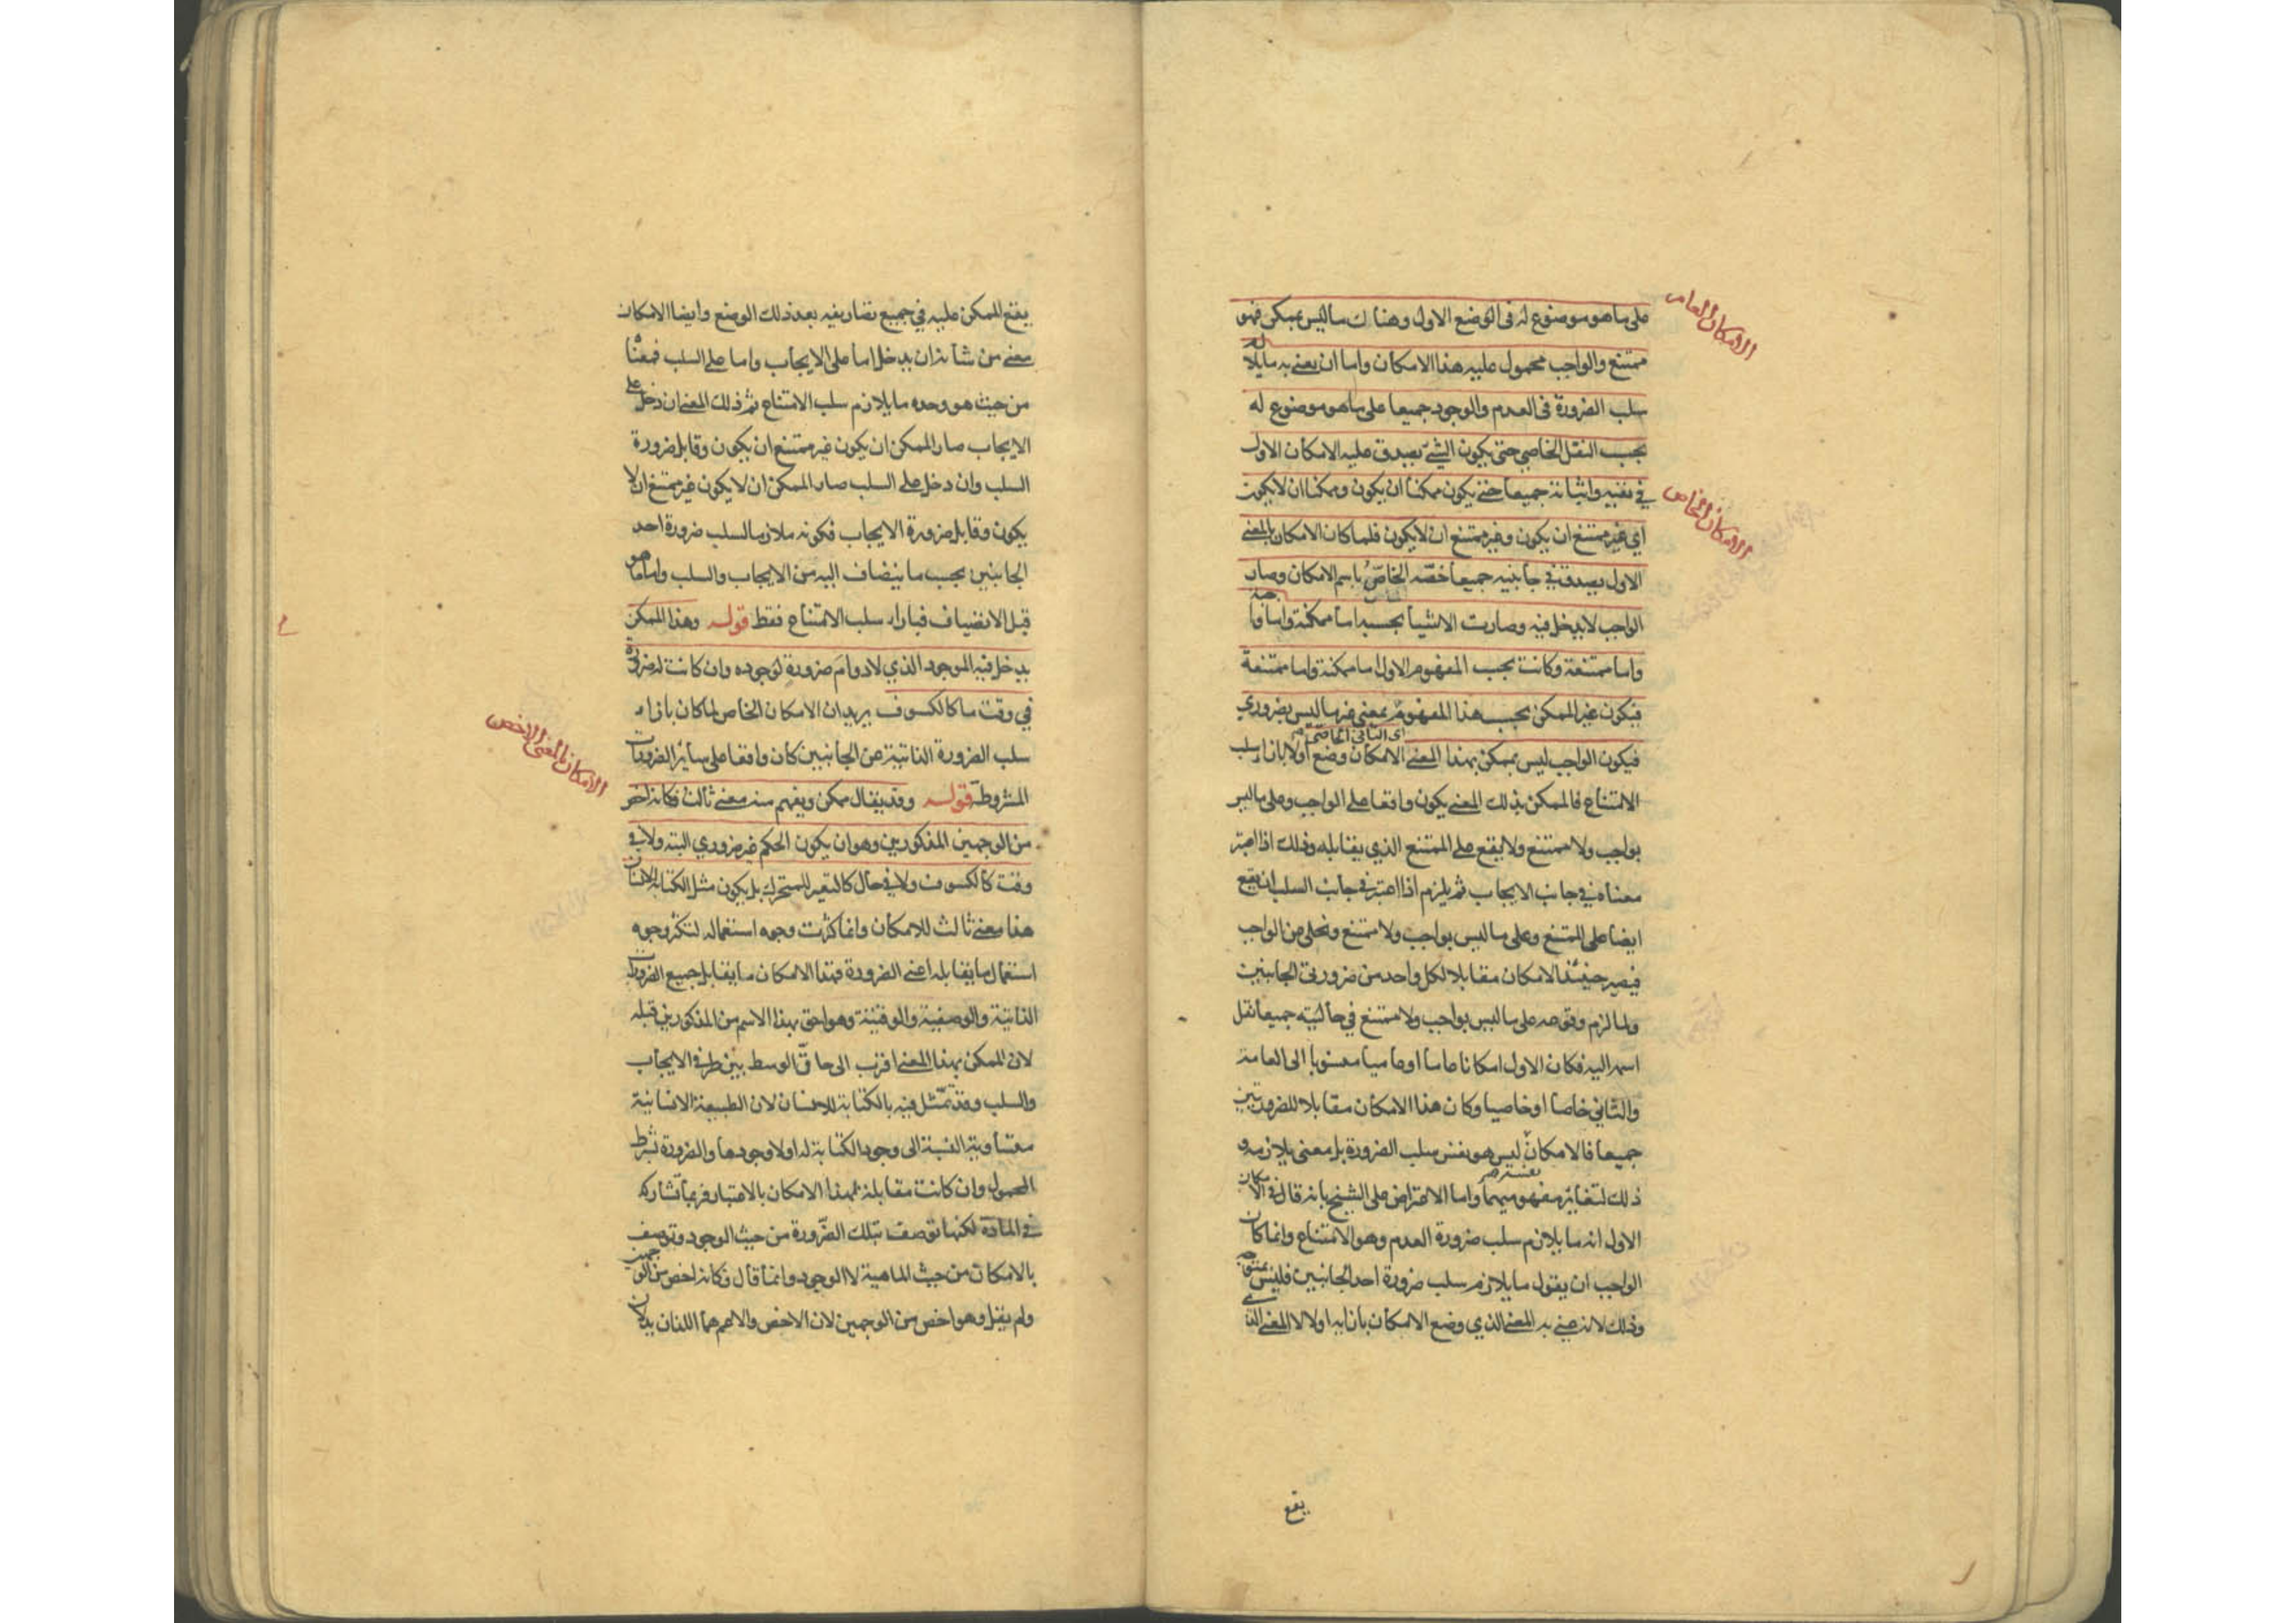 الامكان العام
على ما هو موضوع له فى الوضع الاول وهناك ما ليس بممكن فهو
ممتنع والواجب محمول عليه هذا الامكان واما ان يعنى به ما يلا
زم
سلب الضرورة فى العدم والوجود جميعا على ما هو موضوع له
بحسب النقل الخاصي حتى يكون الشئ يصدق عليه الامكان الاول
الامكان الخاص
في نفيه واثباته جميعا حتى يكون ممكنا ان يكون وممكنا ان لا يكون
اي غير ممتنع ان يكون وغير ممتنع ان لا يكون فلما كان الامكان بالمعنى
الاول يصدق في جانبيه جميعا خصّه الخاصّ باسم الامكان وصار
الواجب لا يدخل فيه وصارت الاشيا بحسبه اما ممكنة واما وا
جبة
واما ممتنعة وكانت بحسب المفهوم الاول اما ممكنة واما ممتنعة
فيكون غير الممكن بحسب هذا المفهوم بمعنى غير ما ليس بضروري
فيكون الواجب ليس بممكن بهذا المعنى الامكان وضع اولا بازاء سلب
اى الثانى الخاصى
الامتناع فالممكن بذلك المعنى يكون واقعا على الواجب وعلى ما ليس
بواجب ولا ممتنع ولا يقع على الممتنع الذي يقابله وذلك اذا اعتبر
معناه في جانب الايجاب ثم يلزم اذا اعتبر في جانب السلب ان يقع
ايضا على الممتنع وعلى ما ليس بواجب ولا ممتنع وتخلى عن الواجب
فيصير حينئذ الامكان مقابلا لكل واحد من ضرورتى الجانبين
ولما لزم وقوعه على ما ليس بواجب ولا ممتنع في حالتيه جميعا نقل
اسمه اليه فكان الاول امكانا عاما او عاميا منسوبا الى العامة
والثاني خاصا او خاصيا وكان هذا الامكان مقابلا للضرورتين
جميعا فالامكان ليس هو نفس سلب الضرورة بل معنى يلازمه و
ذلك لتغاير مفهوميهما واما الاعتراض على الشيخ بانه قال فى الا
مكان
الاول انه ما يلازم سلب ضرورة العدم وهو الامتناع وانما كان
الواجب ان يقول ما يلازم سلب ضرورة احد الجانبين فليس بمتوجه
وذلك لانه عنى به المعنى الذي وضع الامكان بازائه اولا لا المعنى الذي
يقع
يقع الممكن عليه في جميع تصاريفه بعد ذلك الوضع وايضا الامكان
معنى من شأنه ان يدخل اما على الايجاب واما على السلب فمعناه
من حيث هو وحده ما يلازم سلب الامتناع ثم ذلك المعنى ان دخل على
الايجاب صار الممكن ان يكون غير ممتنع ان يكون وقابل ضرورة
السلب وان دخل على السلب صار الممكن ان لا يكون غير ممتنع ان لا
يكون وقابل ضرورة الايجاب فكونه ملازما لسلب ضرورة احد
الجانبين بحسب ما ينضاف اليه من الايجاب والسلب واما ما هو
قبل الانضياف فبازاء سلب الامتناع فقط قوله وهذا الممكن
يدخل فيه الموجود الذي لا دوام ضرورة لوجوده وان كانت له ضرورة
في وقت ما كالكسوف يريد ان الامكان الخاص لما كان بازاء
الامكان بالمعنى الاخص
سلب الضرورة الذاتية عن الجانبين كان واقعا على سائر الضرورات
المشروطة قوله وقد يقال ممكن ويفهم منه معنى ثالث فكانه اخص
من الوجهين المذكورين وهو ان يكون الحكم غير ضروري البتة ولا في
وقت كالكسوف ولا في حال كالتغير للمتحرك بل يكون مثل الكتابة للانسان
هذا معنى ثالث للامكان وانما كثرت وجوه استعماله لتكثر وجوه
استعمال ما يقابله اعنى الضرورة فهذا الامكان ما يقابل جميع الضرورات
الذاتية والوصفية والوقتية وهو احق بهذا الاسم من المذكورين قبله
لان الممكن بهذا المعنى اقرب الى حاقّ الوسط بين طرفى الايجاب
والسلب وقد تمثّل فيه بالكتابة للانسان لان الطبيعة الانسانية
متساوية النسبة الى وجود الكتابة له او لا وجودها والضرورة بشرط
المحمول وان كانت مقابلة لهذا الامكان بالاعتبار فربما تشاركه
في المادة لكنها توصف بتلك الضرورة من حيث الوجود وتوصف
بالامكان من حيث الماهية لا الوجود وانما قال فكانه اخص من الو
جهين
ولم يقل وهو اخص من الوجهين لان الاخص والاعم هما اللذان يدلان